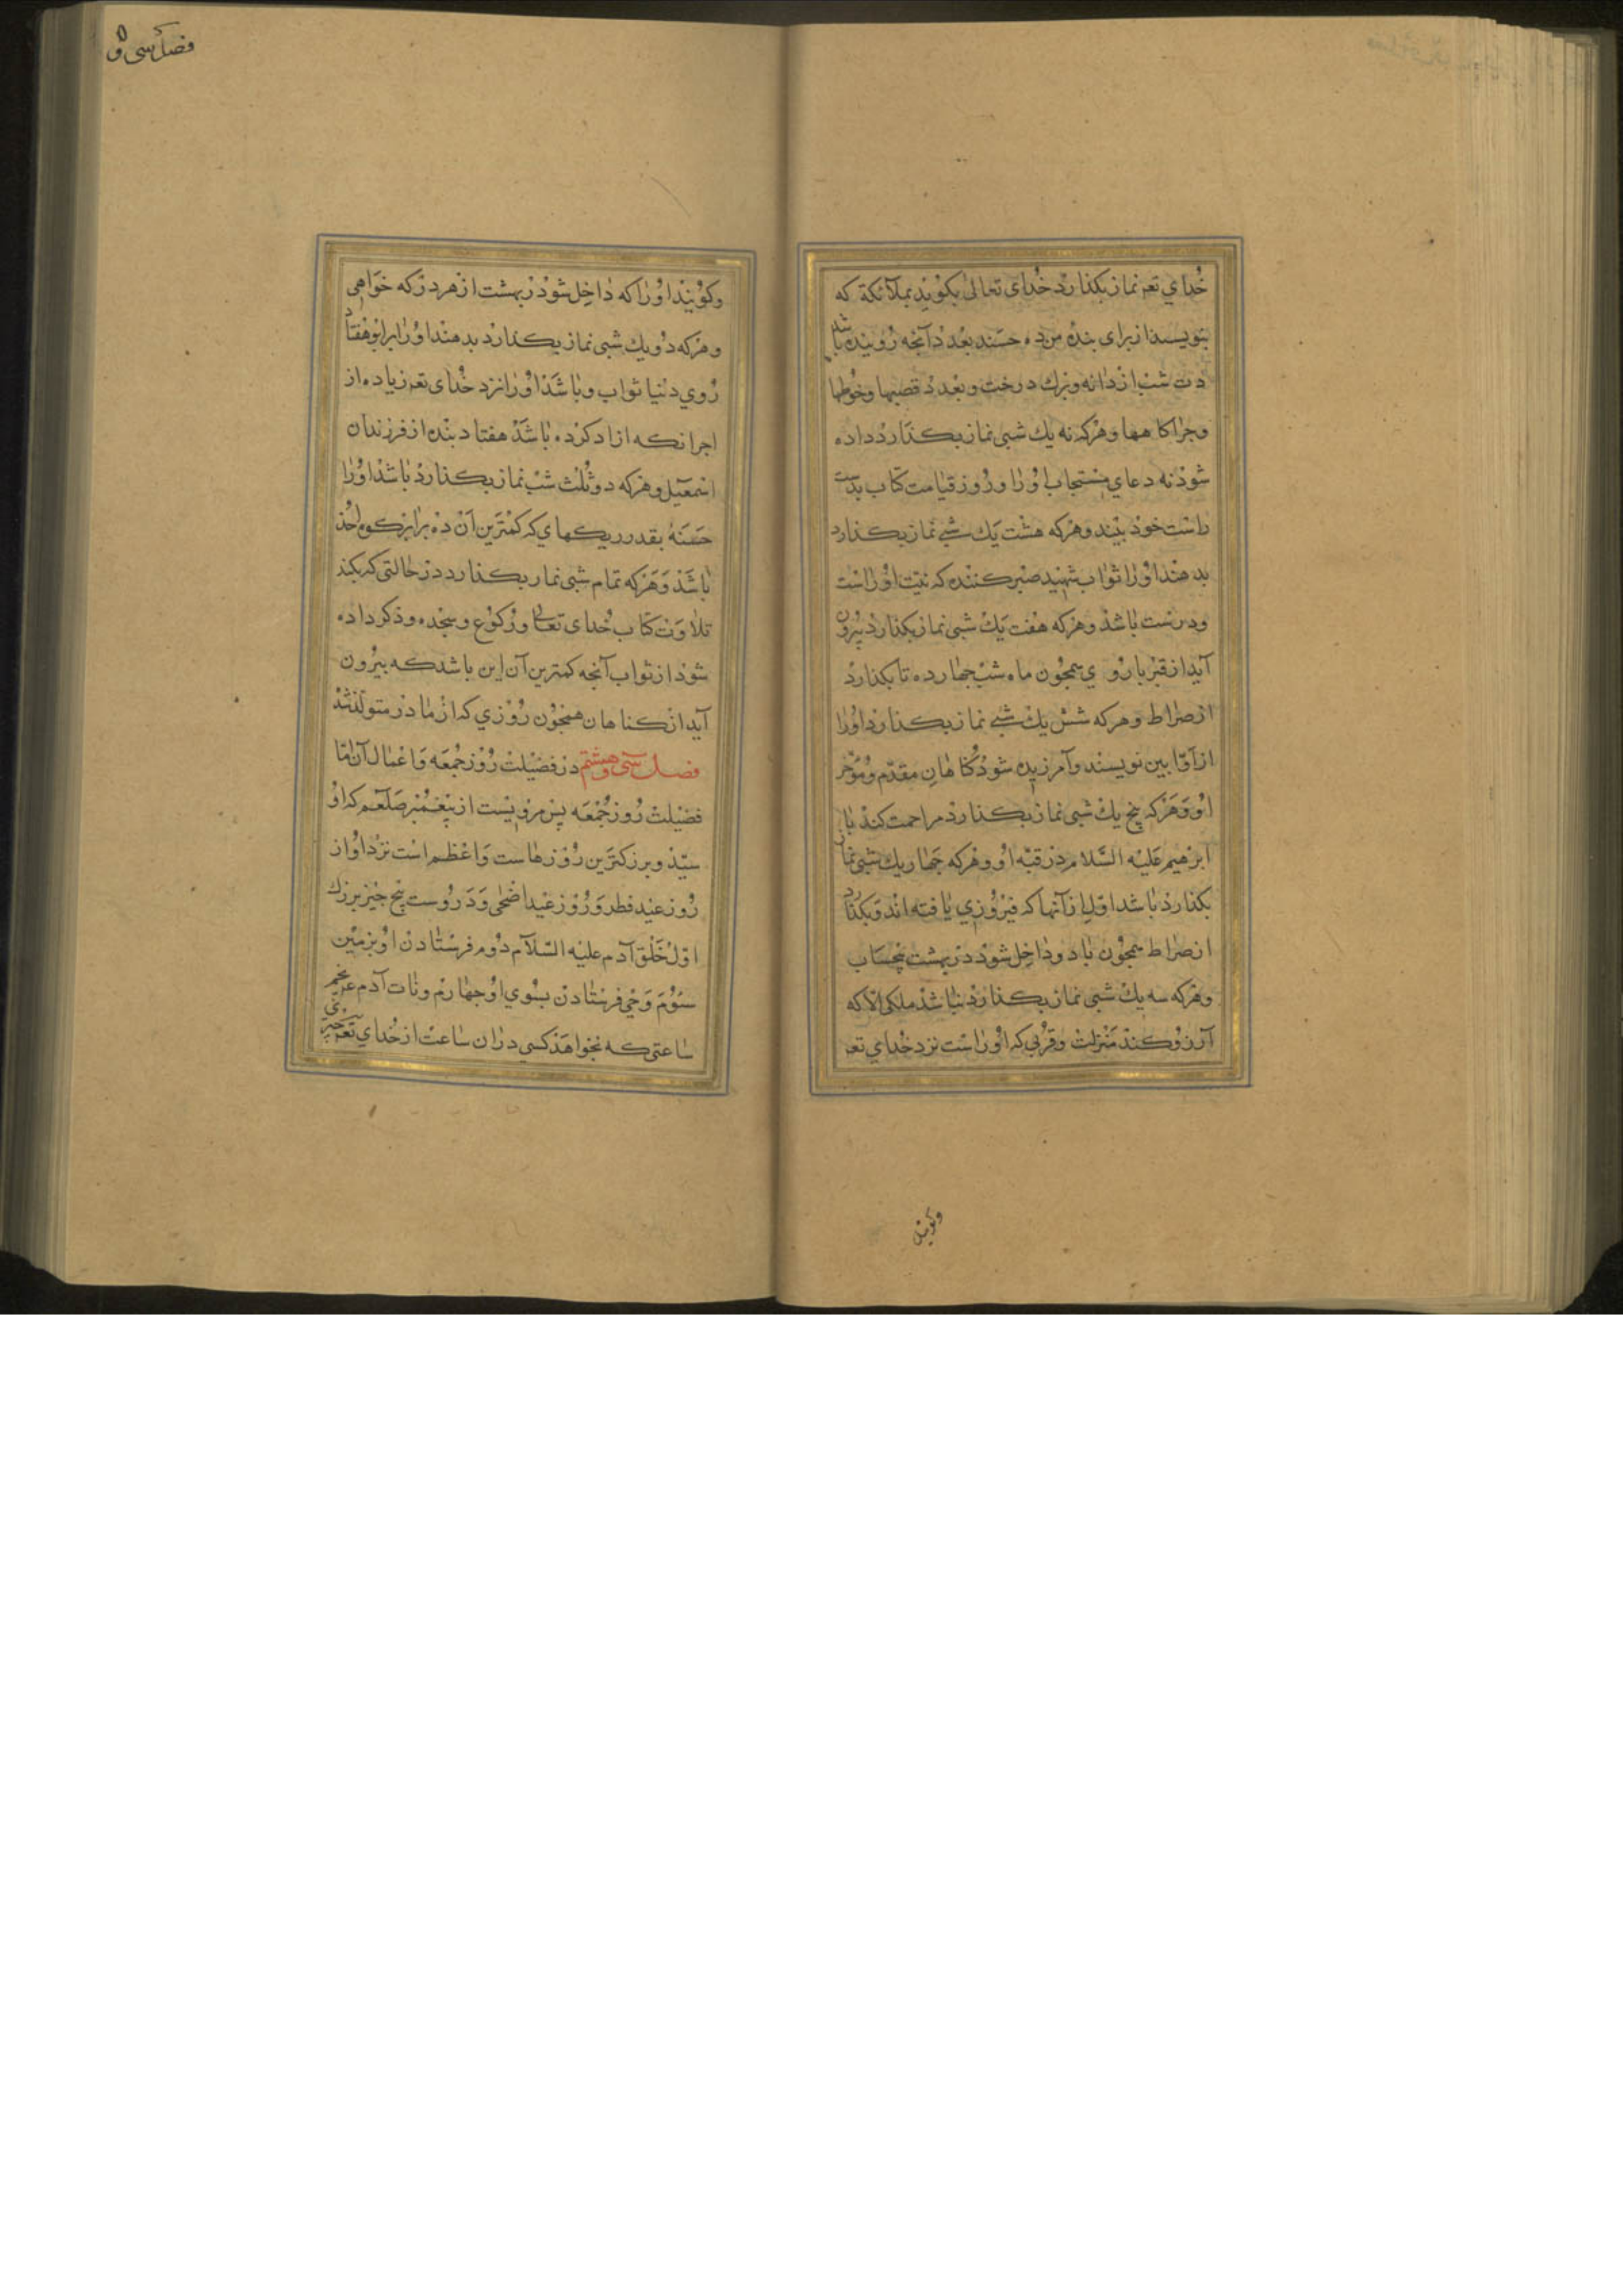 خُداي تعر نماز بكذارد خُداى تعالى بكويد بملآئكة كه
بنويسند از براى بنده من ده حسنه بعدد آنجه روينده باشد
در شب از دانه وبرك درخت وبعدد قصبها وخوطها
وجراكاهها وهركه نه يك شبى نماز بكذارد داده
شود نه دعاى مستجاب اورا وروز قيامت كتاب بدست
راست خود بيند وهركه هشت يك شبى نماز بكذارد
بدهند اورا ثواب شهيد صبر كننده كه نيت اوراست
ودرست باشد وهركه هفت يك شبى نماز بكذارد بيرون
آيد از قبر با روى همجون ماه شب جهارده تا بكذارد
از صراط وهركه شش يك شبى نماز بكذارد اورا
از آوّابين نويسند وآمرزيده شود كناهان مقدّم ومؤخر
او وهركه پنج يك شبى نماز بكذارد مزاحمت كند با
ابرهيم عليه السّلام در قبّه او وهركه جهار يك شبى نماز
بكذارد باشد اوّل از آنها كه فيروزي يافته اند وبكذرد
از صراط همجون باد وداخل شود در بهشت بيحساب
وهركه سه يك شبى نماز بكذارد نباشد ملكى الّا كه
آرزو كند منزلت وقربى كه اوراست نزد خداي تعر
وكويند
فصل سى و
وكويند اورا كه داخل شو در بهشت از هر در كه خواهى
وهركه دويك شبى نماز بكذارد بدهند اورا برابر هفتاد
روي دنيا ثواب وباشد اورا نزد خُداى تعر زياده از
اجر انكه ازاد كرده باشد هفتاد بنده از فرزندان
اسمعيل وهركه دو ثلث شب نماز بكذارد باشد اورا
حسنه بقدر ريكهاي كه كمترين آن ده برابر كوه احُد
باشد وهركه تمام شبى نماز بكذارد در حالتى كه بكند
تلاوت كتاب خُداى تعالى وركوع وسجده وذكر داده
شود از ثواب آنجه كمترين آن اين باشد كه بيرون
آيد از كناهان همجون روزي كه از مادر متولد شد
فصل سى وهشتم در فضيلت روز جمعه واعمال آن امّا
فضيلت روز جُمعه پس مرويست از پيغمبر صلعم كه او
سيّد وبزركترين روزهاست واعظم است نزد او از
روز عيد فطر وروز عيد اضحى ودروست پنج جيز بزرك
اوّل خلق آدم عليه السّلام دوم فرستادن او بزمين
سوم وحى فرستادن بسوي او جهارم وفات آدم عر پنجم
ساعتى كه نخواهد كسى دران ساعت از خُداي تعر جيزي